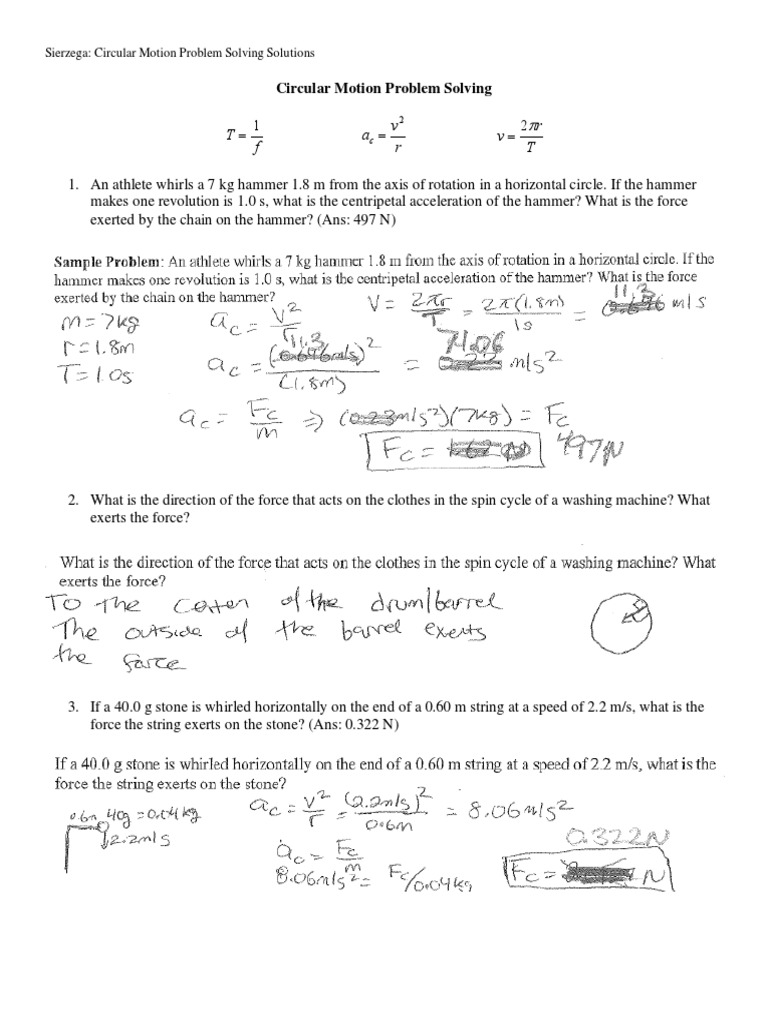 Sierzega: Circular Motion Problem Solving Solutions
Circular Motion Problem Solving
T = 1/f a_c = v²/r v = 2πr/T
1. An athlete whirls a 7 kg hammer 1.8 m from the axis of rotation in a horizontal circle. If the hammer
makes one revolution is 1.0 s, what is the centripetal acceleration of the hammer? What is the force
exerted by the chain on the hammer? (Ans: 497 N)
Sample Problem: An athlete whirls a 7 kg hammer 1.8 m from the axis of rotation in a horizontal circle. If the
hammer makes one revolution is 1.0 s, what is the centripetal acceleration of the hammer? What is the force
exerted by the chain on the hammer?
m = 7kg
r = 1.8m
T = 1.0s
a_c = V²/r
V = 2πr/T = 2π(1.8m)/1s = 11.3 m/s
a_c = (11.3 m/s)²/(1.8m) = 71.06 m/s²
a_c = F_c/m ⇒ (m/s²)(7kg) = F_c
F_c = 497N
2. What is the direction of the force that acts on the clothes in the spin cycle of a washing machine? What
exerts the force?
What is the direction of the force that acts on the clothes in the spin cycle of a washing machine? What
exerts the force?
To the center of the drum/barrel
The outside of the barrel exerts
the force
3. If a 40.0 g stone is whirled horizontally on the end of a 0.60 m string at a speed of 2.2 m/s, what is the
force the string exerts on the stone? (Ans: 0.322 N)
If a 40.0 g stone is whirled horizontally on the end of a 0.60 m string at a speed of 2.2 m/s, what is the
force the string exerts on the stone?
0.6m 40g = 0.04kg
2.2m/s
a_c = V²/r = (2.2m/s)²/0.6m = 8.06m/s²
a_c = F_c/m
8.06m/s² = F_c/0.04kg
0.322N
F_c = N